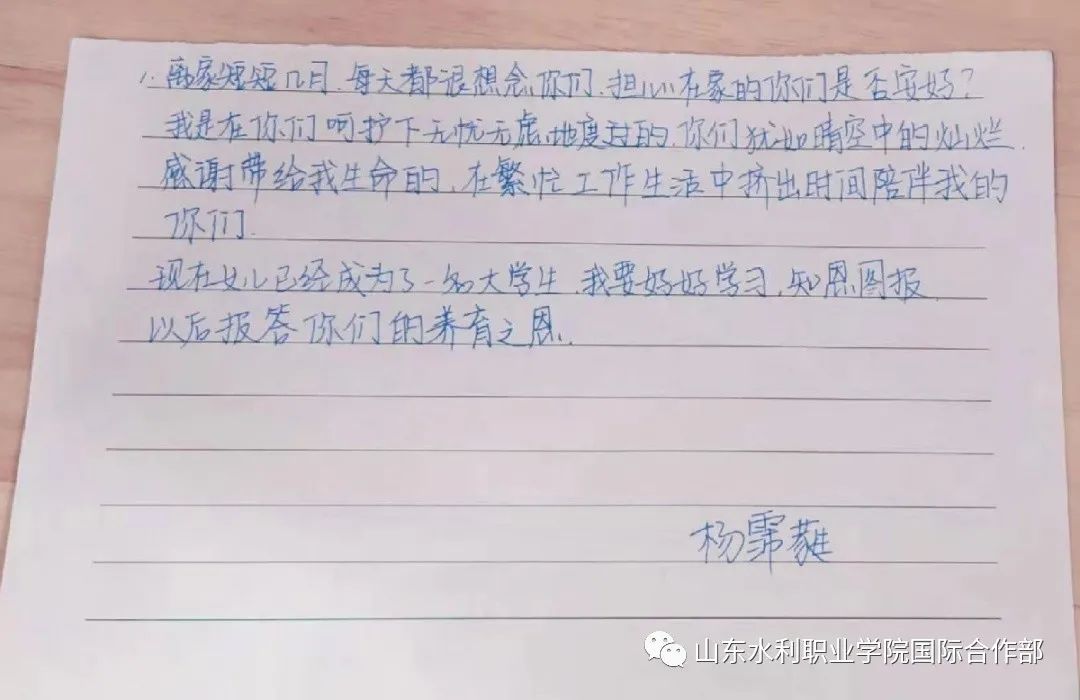 1. 离家短短几月,每天都很想念你们,担心在家的你们是否安好?
我是在你们呵护下无忧无虑地度过的,你们犹如晴空中的灿烂.
感谢带给我生命的,在繁忙工作生活中挤出时间陪伴我的
你们.
现在女儿已经成为了一名大学生,我要好好学习,知恩图报,
以后报答你们的养育之恩.
杨霈
山东水利职业学院国际合作部